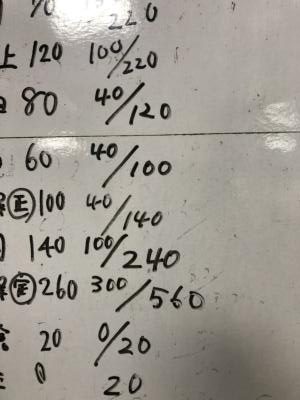 70 220
上 120 100/220
80 40/120
60 40/100
㊣ 100 40/140
140 100/240
260 300/560
京 20 0/20
0 20